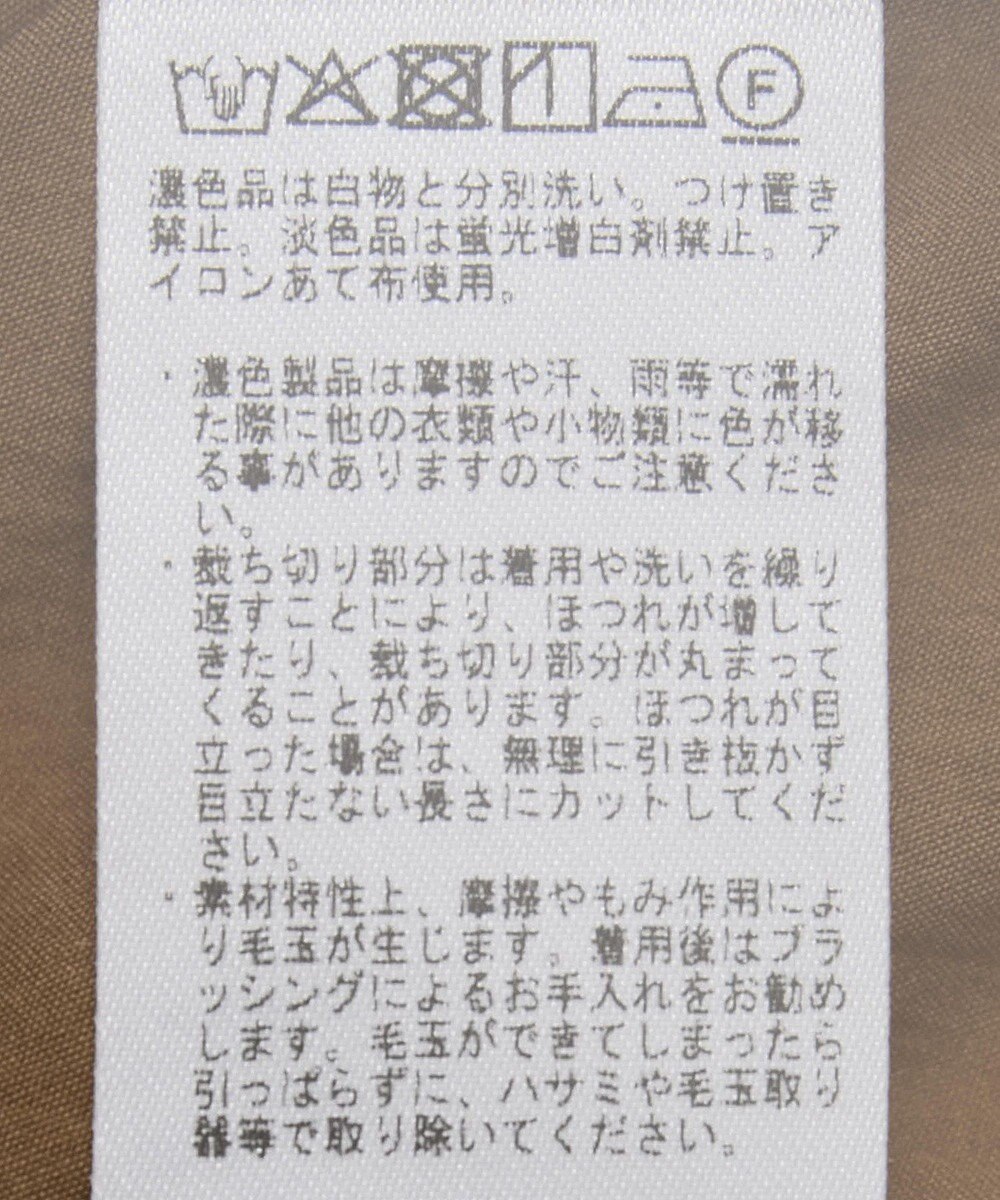 F
濃色品は白物と分別洗い。つけ置き
禁止。淡色品は蛍光増白剤禁止。ア
イロンあて布使用。
・濃色製品は摩擦や汗、雨等で濡れ
た際に他の衣類や小物類に色が移
る事がありますのでご注意くださ
い。
・裁ち切り部分は着用や洗いを繰り
返すことにより、ほつれが増して
きたり、裁ち切り部分が丸まって
くることがあります。ほつれが目
立った場合は、無理に引き抜かず
目立たない長さにカットしてくだ
さい。
・素材特性上、摩擦やもみ作用によ
り毛玉が生じます。着用後はブラ
ッシングによるお手入れをお勧め
します。毛玉ができてしまったら
引っぱらずに、ハサミや毛玉取り
器等で取り除いてください。